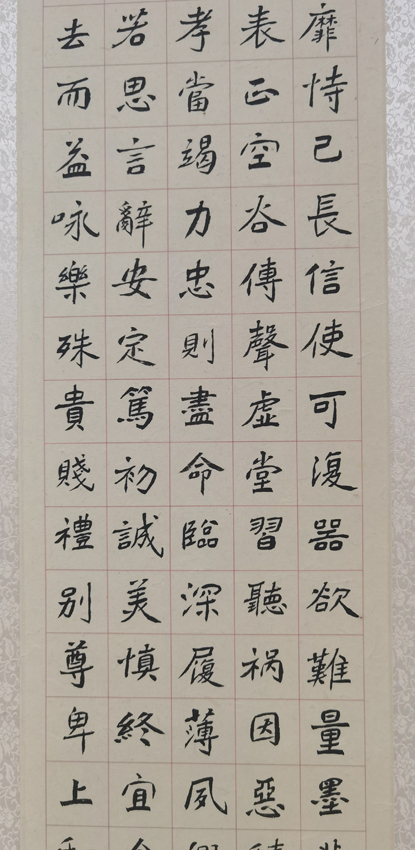 靡恃己長信使可復器欲難量墨
表正空谷傳聲虛堂習聽祸因惡
孝當竭力忠則盡命臨深履薄夙
若思言辭安定篤初誠美慎終宜
去而益咏樂殊貴賤禮别尊卑上